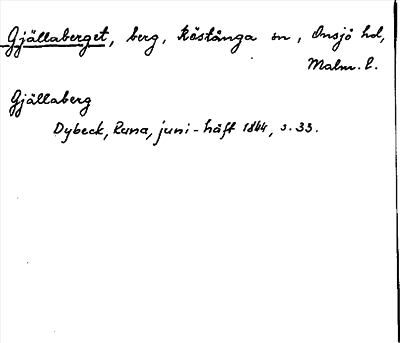 Gjällaberget, berg, Röstånga sn, Onsjö hd,
Malm. l.
Gjällaberg
Dybeck, Runa, juni-häft 1844, s. 33.